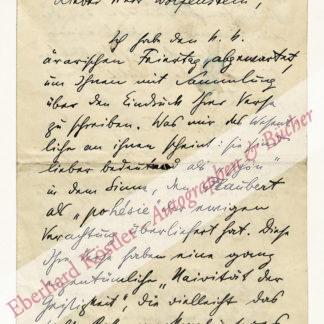 Lieber Herr Wolfenstein,
Ich habe den k. k.
ärarischen Feiertag abgewartet,
um Ihnen mit Sammlung
über den Eindruck Ihrer Verse
zu schreiben. Was mir das Wesent-
liche an ihnen scheint: sie sind
lieber bedeutend als „schön“
in dem Sinn, den Flaubert
als „pohésie“ der ewigen
Verachtung überliefert hat. Diese
Ihre Verse haben eine ganz
eigentümliche „Naivität der
Geistigkeit“, die vielleicht das
Eberhard Köstler Autographen & Bücher